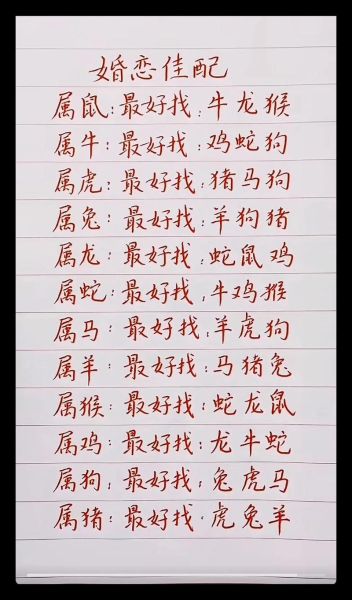 婚恋佳配
属鼠:最好找:牛龙猴
属牛:最好找:鸡蛇狗
属虎:最好找:猪马狗
属兔:最好找:羊狗猪
属龙:最好找:蛇鼠鸡
属蛇:最好找:牛鸡猴
属马:最好找:羊虎狗
属羊:最好找:马猪兔
属猴:最好找:蛇龙鼠
属鸡:最好找:龙牛蛇
属狗:最好找:兔虎马
属猪:最好找·虎兔羊